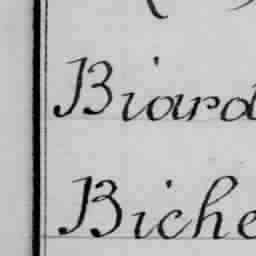 Biard
Biche